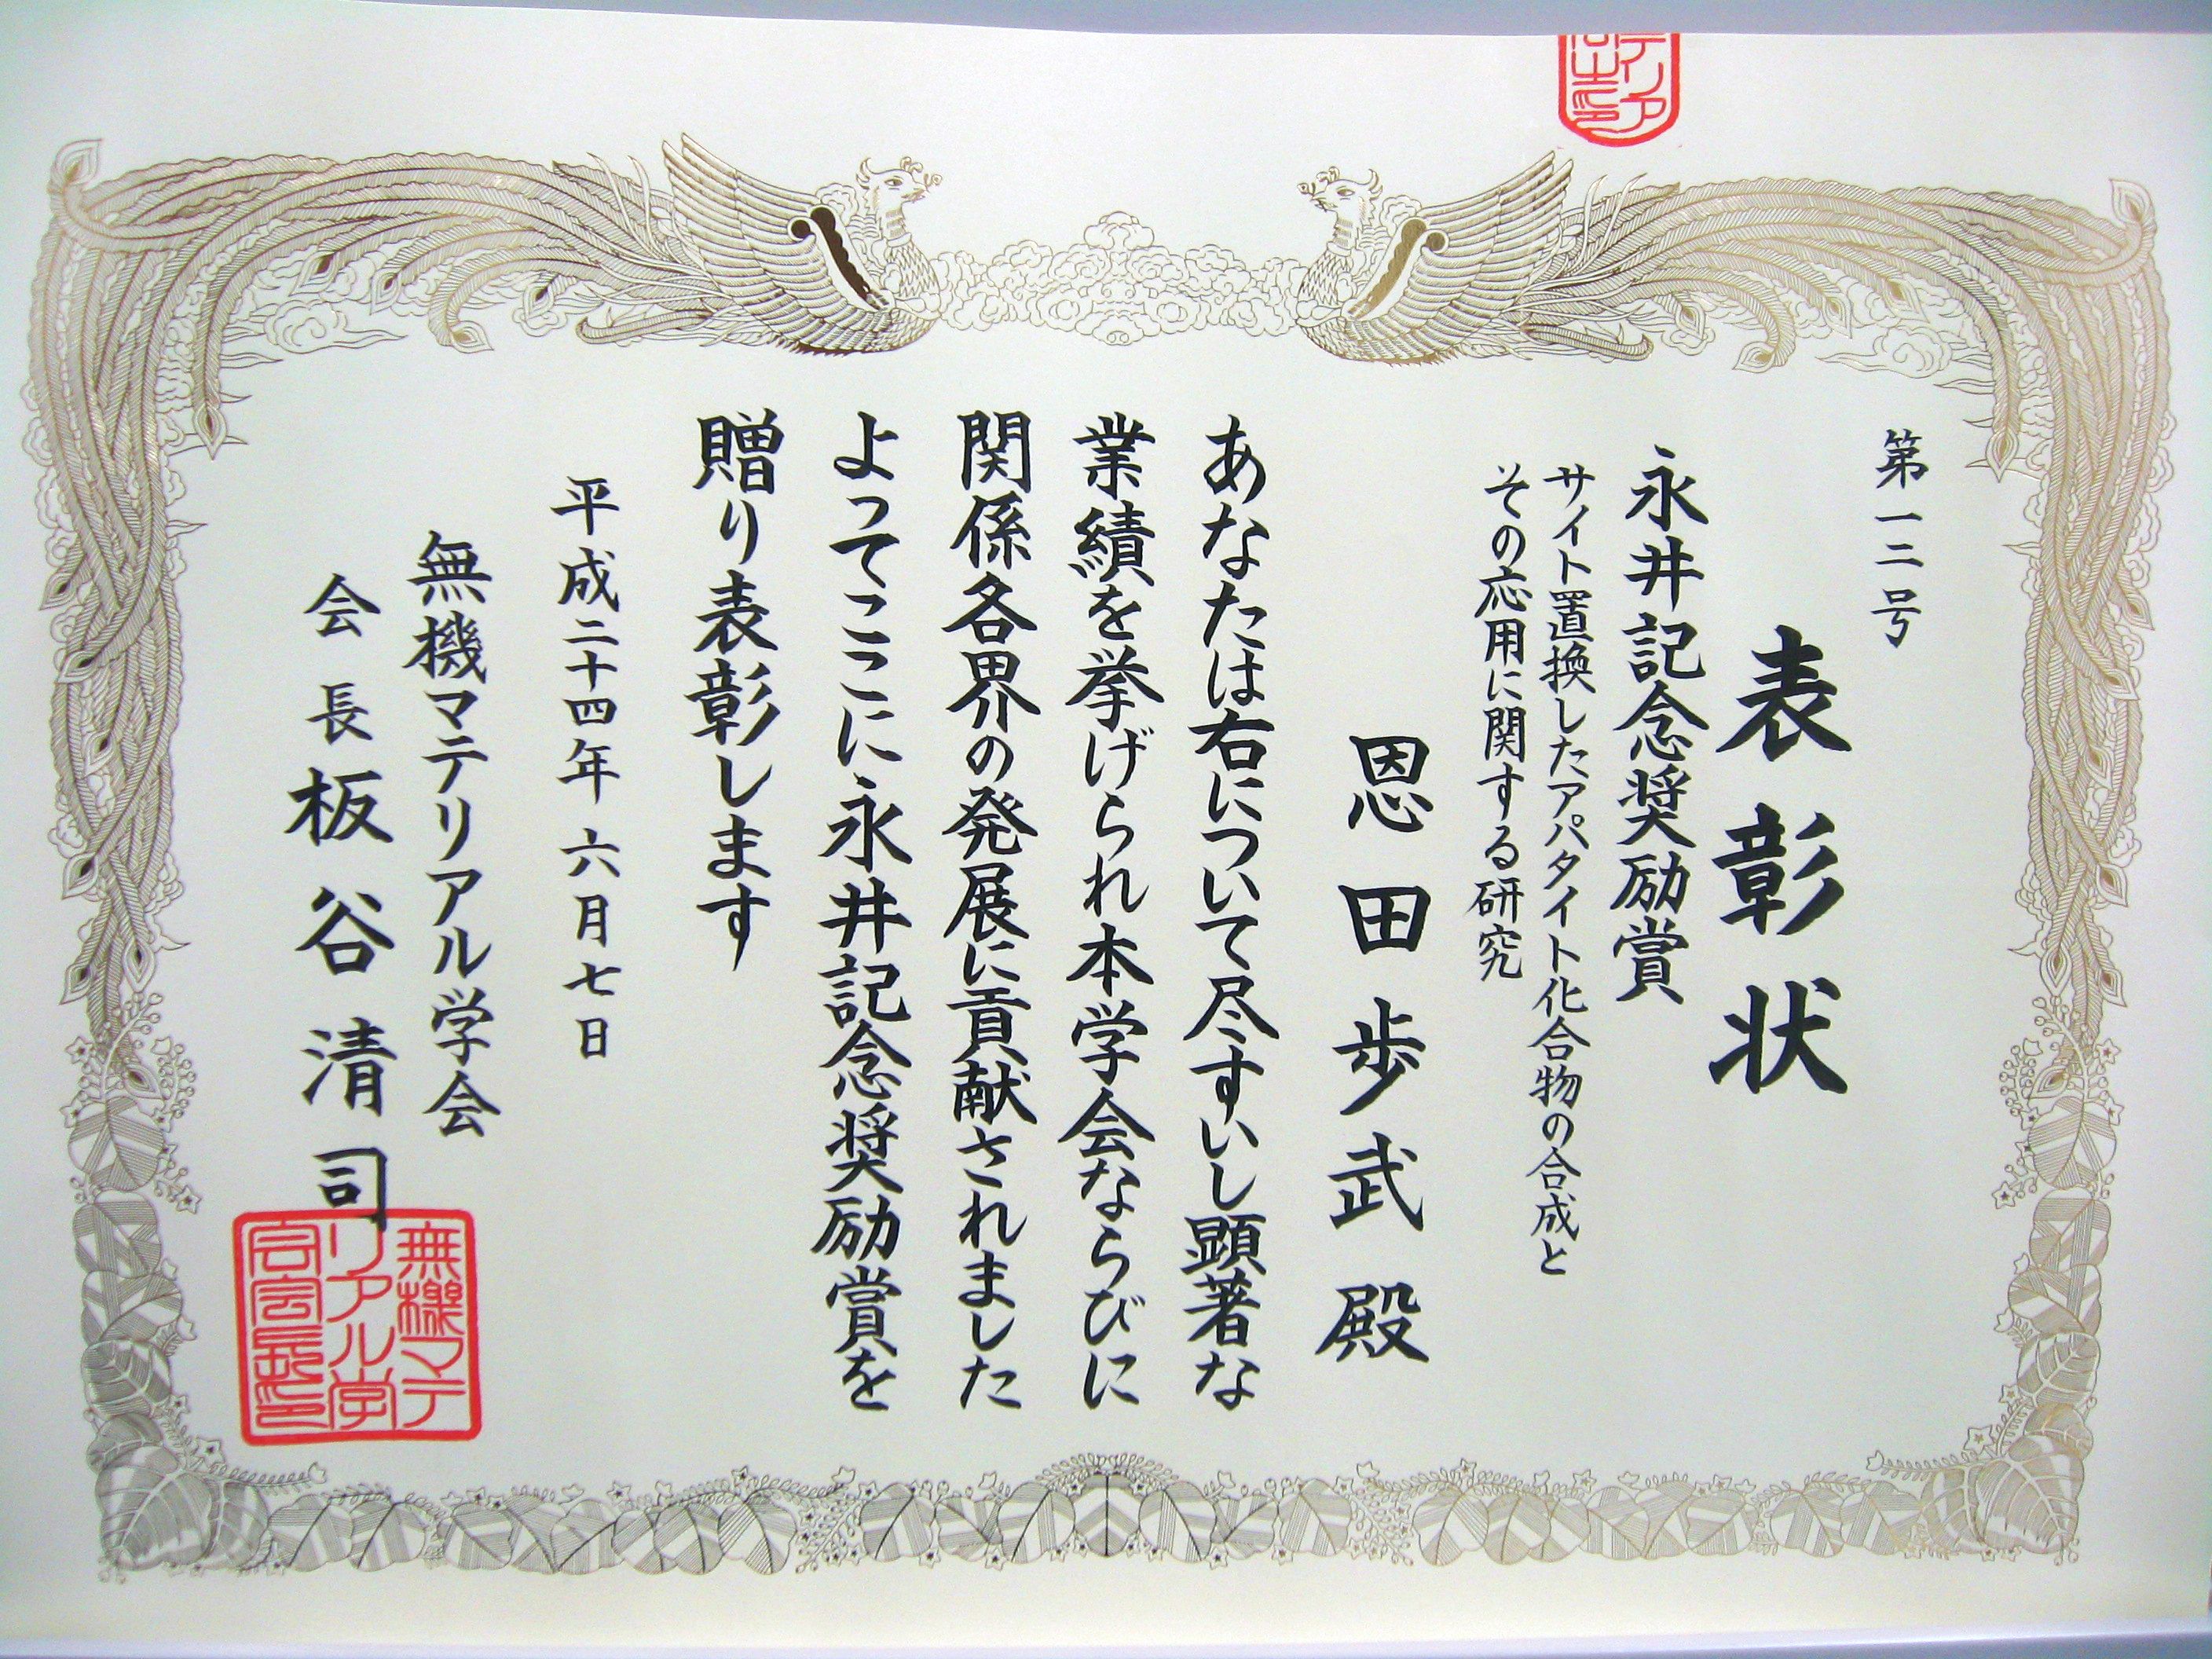 第一二号
表彰状
永井記念奨励賞
サイト置換したアパタイト化合物の合成と
その応用に関する研究
恩田歩武殿
あなたは右について尽すいし顕著な
業績を挙げられ本学会ならびに
関係各界の発展に貢献されました
よってここに永井記念奨励賞を
贈り表彰します
平成二十四年六月七日
無機マテリアル学会
会長板谷清司
無機マテ
リアル学
会会長印